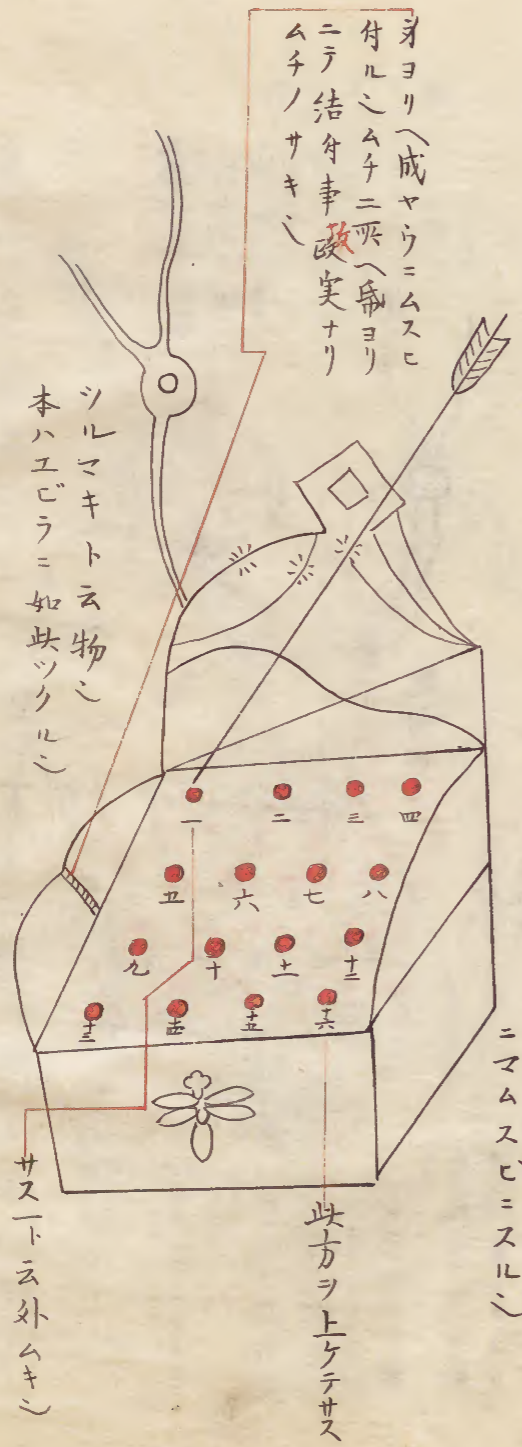 身ヨリヘ成ヤウニムスヒ
付ル也ムチ二所ヘ帋ヨリ
ニテ結付事故実ナリ
ムチノサキ也
ツルマキト云物也
本ハエビラニ如此ツクル也
一 二 三 四
五 六 七 八
九 十 十一 十二
十三 十四 十五 十六
ニマムスビニスル也
此方ヲ上ケテサス
サス一ト云外ムキ也